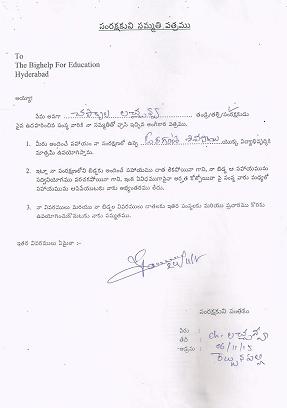 సంరక్షకుని సమ్మతి పత్రము
To
The Bighelp For Education
Hyderabad
అయ్యా!
నేను అనగా తండ్రి/తల్లి/సంరక్షకుడు
పైన ఉదహరించిన సంస్థ వారికి నా సమ్మతితో వ్రాసి ఇచ్చిన అంగీకార పత్రము.
1. మీరు అందించే సహాయం నా సంరక్షణలో ఉన్న యొక్క విద్యాభివృద్ధికి
మాత్రమే ఉపయోగిస్తాను.
2. ఇట్లా నా సంరక్షణలోని బిడ్డకు అందించే సహాయము దాత లేకపోయినా గాని, నా బిడ్డ ఆ సహాయమును
సద్వినియోగము పరచకపోయినా గాని, ఇంక ఏవిధముగానైనా అర్హత కోల్పోయినా పై సంస్థ వారు మధ్యలో
సహాయమును ఆపివేయుటకు నాకు అభ్యంతరము లేదు.
3. నా వివరములు మరియు నా బిడ్డల వివరములు దాతలకు ఇతర సంస్థలకు మరియు ప్రచారము కొరకు
ఉపయోగించుకొనుటకు నాకు సమ్మతము.
ఇతర వివరములు ఏమైనా :-
సంరక్షకుని సంతకం
పేరు : ch. లచ్చన్న
తేది : 06/11/15